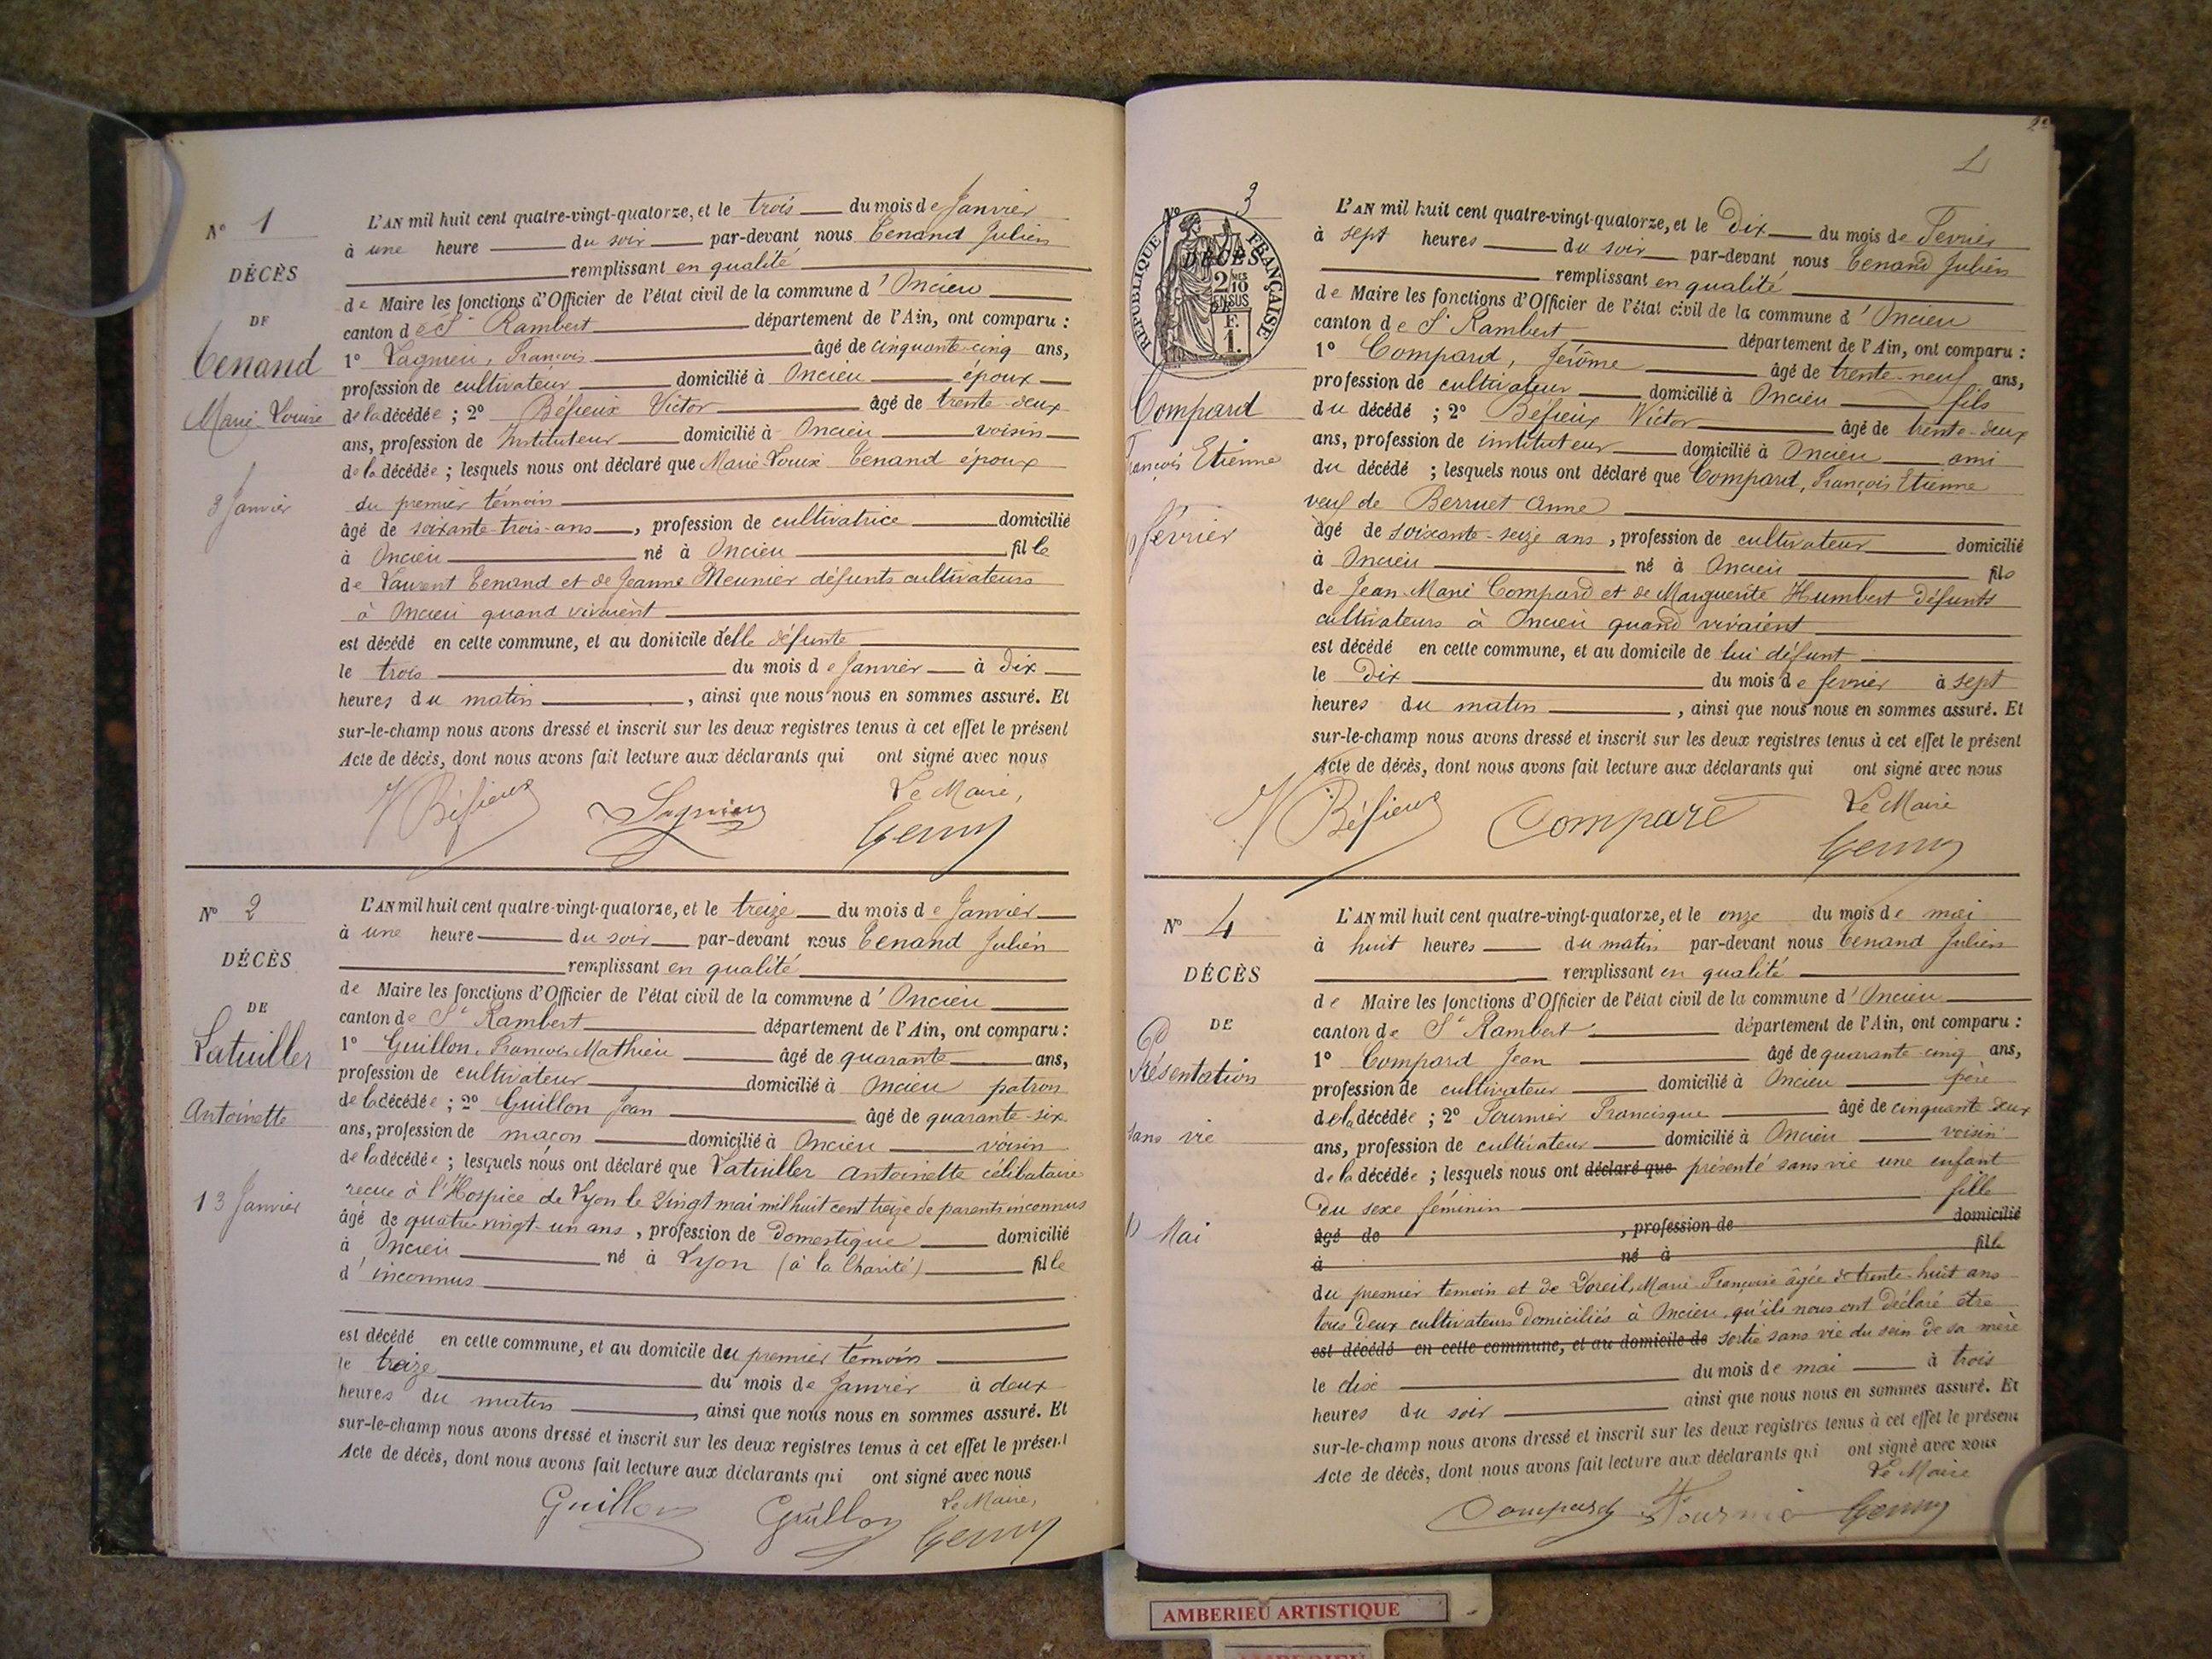 N° 1
DÉCÈS
DE
Tenand
Marie Louise
3 Janvier
L'AN mil huit cent quatre-vingt-quatorze, et le trois du mois de Janvier
à une heure du soir par-devant nous Tenand Julien
remplissant en qualité
de Maire les fonctions d'Officier de l'état civil de la commune d'Oncieu
canton de St Rambert département de l'Ain, ont comparu :
1° Lagnieu, François âgé de cinquante-cinq ans,
profession de cultivateur domicilié à Oncieu époux
de la décédée ; 2° Béfieux Victor âgé de trente-deux
ans, profession de Instituteur domicilié à Oncieu voisin
de la décédée ; lesquels nous ont déclaré que Marie-Louise Tenand époux
du premier témoin
âgé de soixante-trois-ans, profession de cultivatrice domicilié
à Oncieu né à Oncieu fille
de Laurent Tenand et de Jeanne Meunier défunts cultivateurs
à Oncieu quand vivaient
est décédé en cette commune, et au domicile d'elle défunte
le trois du mois de Janvier à dix
heures du matin, ainsi que nous nous en sommes assuré. Et
sur-le-champ nous avons dressé et inscrit sur les deux registres tenus à cet effet le présent
Acte de décès, dont nous avons fait lecture aux déclarants qui ont signé avec nous
Le Maire,
V Béfieux Lagnieu Tenand
N° 2
DÉCÈS
DE
Latuiller
Antoinette
13 Janvier
L'AN mil huit cent quatre-vingt-quatorze, et le treize du mois de Janvier
à une heure du soir par-devant nous Tenand Julien
remplissant en qualité
de Maire les fonctions d'Officier de l'état civil de la commune d'Oncieu
canton de St Rambert département de l'Ain, ont comparu :
1° Guillon, François Mathieu âgé de quarante ans,
profession de cultivateur domicilié à Oncieu patron
de la décédée ; 2° Guillon Jean âgé de quarante-six
ans, profession de maçon domicilié à Oncieu voisin
de la décédée ; lesquels nous ont déclaré que Latuiller Antoinette célibataire
reçue à l'Hospice de Lyon le vingt mai mil huit cent treize de parents inconnus
âgé de quatre-vingt-un ans, profession de Domestique domicilié
à Oncieu né à Lyon (à la Charité) fille
d'inconnus
est décédé en cette commune, et au domicile du premier témoin
le treize du mois de Janvier à deux
heures du matin, ainsi que nous nous en sommes assuré. Et
sur-le-champ nous avons dressé et inscrit sur les deux registres tenus à cet effet le présent
Acte de décès, dont nous avons fait lecture aux déclarants qui ont signé avec nous
Le Maire,
Guillon Guillon Tenand
2
N° 3
RÉPUBLIQUE FRANÇAISE
DÉCÈS
2/10 MES
EN SUS
DE
F.
1.
Compard
François Etienne
février
L'AN mil huit cent quatre-vingt-quatorze, et le Dix du mois de Fevrier
à sept heures du soir par-devant nous Tenand Julien
remplissant en qualité
de Maire les fonctions d'Officier de l'état civil de la commune d'Oncieu
canton de St Rambert département de l'Ain, ont comparu :
1° Compard, Jérôme âgé de trente-neuf ans,
profession de cultivateur domicilié à Oncieu fils
du décédé ; 2° Béfieux Victor âgé de trente-deux
ans, profession de instituteur domicilié à Oncieu ami
du décédé ; lesquels nous ont déclaré que Compard, François Etienne
veuf de Berruet Anne
âgé de soixante-seize ans, profession de cultivateur domicilié
à Oncieu né à Oncieu fils
de Jean-Marie Compard et de Marguerite Humbert défunts
cultivateurs à Oncieu quand vivaient
est décédé en cette commune, et au domicile de lui défunt
le Dix du mois de fevrier à sept
heures du matin, ainsi que nous nous en sommes assuré. Et
sur-le-champ nous avons dressé et inscrit sur les deux registres tenus à cet effet le présent
Acte de décès, dont nous avons fait lecture aux déclarants qui ont signé avec nous
Le Maire
V Béfieux Compard Tenand
N° 4
DÉCÈS
DE
Présentation
sans vie
Mai
L'AN mil huit cent quatre-vingt-quatorze, et le onze du mois de mai
à huit heures du matin par-devant nous Tenand Julien
remplissant en qualité
de Maire les fonctions d'Officier de l'état civil de la commune d'Oncieu
canton de St Rambert département de l'Ain, ont comparu :
1° Compard Jean âgé de quarante-cinq ans,
profession de cultivateur domicilié à Oncieu père
de la décédée ; 2° Fournier Francisque âgé de cinquante-deux
ans, profession de cultivateur domicilié à Oncieu voisin
de la décédée ; lesquels nous ont déclaré que présenté sans vie une enfant
du sexe féminin fille
âgé de , profession de domicilié
à né à fille
du premier témoin et de Marie-Françoise âgée de trente-huit ans
tous deux cultivateurs domiciliés à Oncieu, qu'ils nous ont déclaré être
est décédé en cette commune, et au domicile de sortie sans vie du sein de sa mère
le dix du mois de mai à trois
heures du soir ainsi que nous nous en sommes assuré. Et
sur-le-champ nous avons dressé et inscrit sur les deux registres tenus à cet effet le présent
Acte de décès, dont nous avons fait lecture aux déclarants qui ont signé avec nous
Le Maire
Compard Fournier Tenand
AMBERIEU ARTISTIQUE
AMBERIEU